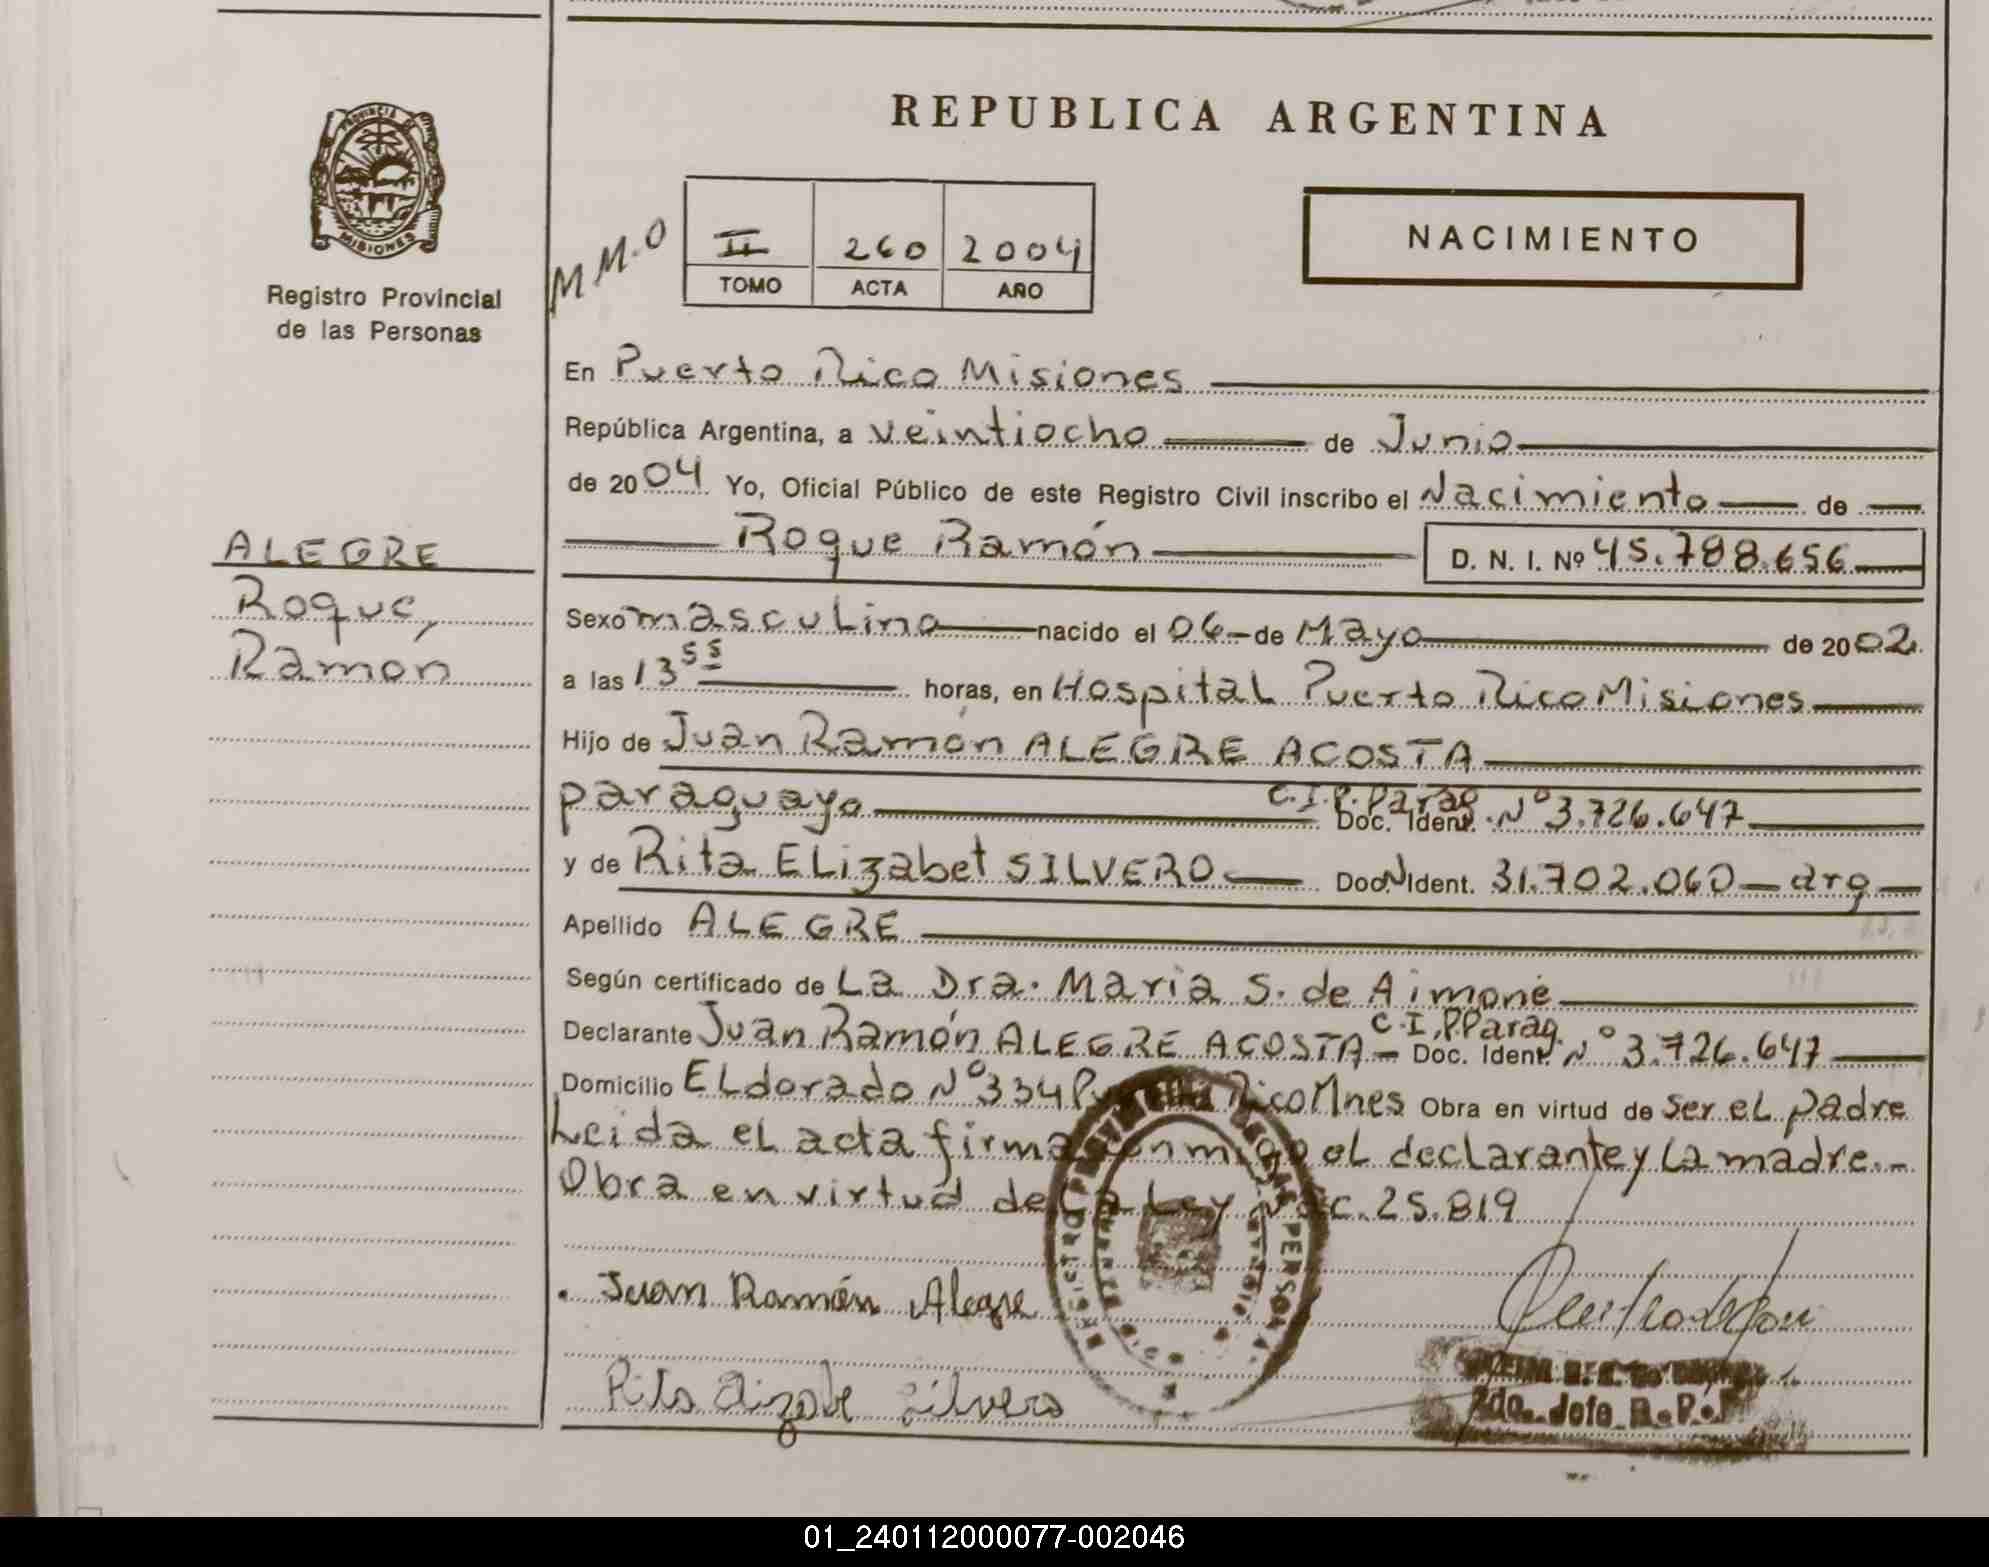 REPUBLICA ARGENTINA
PROVINCIA DE
MISIONES
Registro Provincial
de las Personas
M M.O
II 260 2004
TOMO ACTA AÑO
NACIMIENTO
En Puerto Rico Misiones
República Argentina, a veintiocho de Junio
de 2004 Yo, Oficial Público de este Registro Civil inscribo el Nacimiento de
Roque Ramón D. N. I. Nº 45.788.656
ALEGRE
Roque,
Ramón
Sexo masculino nacido el 06 de Mayo de 2002
a las 13 55 horas, en Hospital Puerto Rico Misiones
Hijo de Juan Ramón ALEGRE ACOSTA
paraguayo C.I.P. Parag Doc. Ident. Nº 3.726.647
y de Rita ELizabet SILVERO Doc. N Ident. 31.702.060 arg
Apellido ALEGRE
Según certificado de La Dra. Maria S. de Aimoné
Declarante Juan Ramón ALEGRE ACOSTA C.I.P. Parag. Doc. Ident. Nº 3.726.647
Domicilio ELdorado Nº 334 Rico Mnes Obra en virtud de ser eL padre
Leida eL acta firma conmigo eL declarante y La madre.-
Obra en virtud de La Ley Nac. 25.819
Juan Ramón Alegre
Rita Elizabe Silvero
2do. Jefe R.P.P
01_240112000077-002046